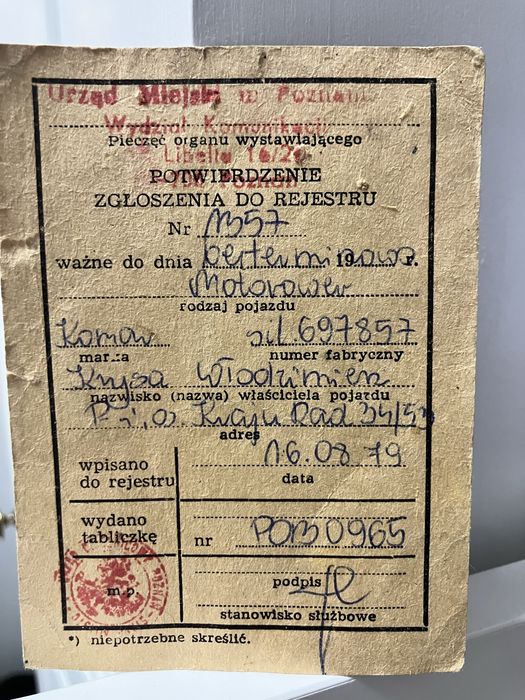 Urząd Miejski w Poznaniu
Wydział Komunikacji
Pieczęć organu wystawiającego
Libelta 16/20
Poznań
POTWIERDZENIE
ZGŁOSZENIA DO REJESTRU
Nr 1357
ważne do dnia bezterminowo 19 r.
Motorower
rodzaj pojazdu
Komar sil. 697857
marka numer fabryczny
Krysa Włodzimierz
nazwisko (nazwa) właściciela pojazdu
P-ń, os. Kraju Rad
adres
wpisano do rejestru
16.08 79
data
wydano tabliczkę
nr POB 0965
m.p.
podpis
stanowisko służbowe
*) niepotrzebne skreślić.